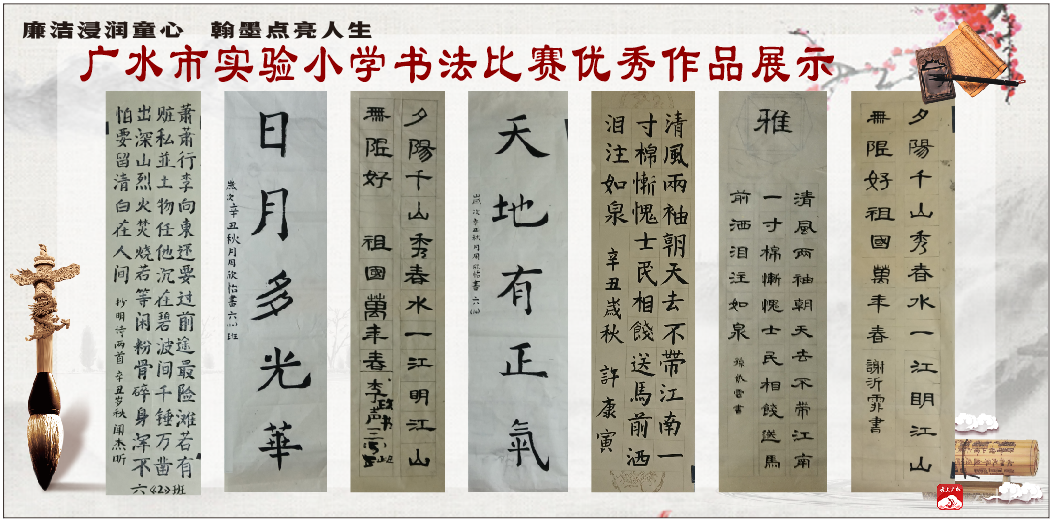 廉洁浸润童心 翰墨点亮人生
广水市实验小学书法比赛优秀作品展示
蕭蕭行李向東还要过前途最险滩若有
赃私並土物任他沉在碧波间千锤万凿
出深山烈火焚烧若等闲粉骨碎身浑不
怕要留清白在人间 抄明诗两首 辛丑岁秋 闻杰昕
六(2)班
日月多光華
歲次辛丑秋月周欣怡書六(一)班
夕陽千山秀春水一江明江山
無限好 祖國萬年春李
天地有正氣
歲次辛丑秋月周欣怡書六
清風兩袖朝天去不带江南一
寸棉慚愧士民相餞送馬前洒
泪注如泉 辛丑歲秋 許康寅
雅
清風两袖朝天去不带江南
一寸棉慚愧士民相餞送馬
前洒泪注如泉
夕陽千山秀春水一江明江山
無限好祖國萬年春 謝沂霏書